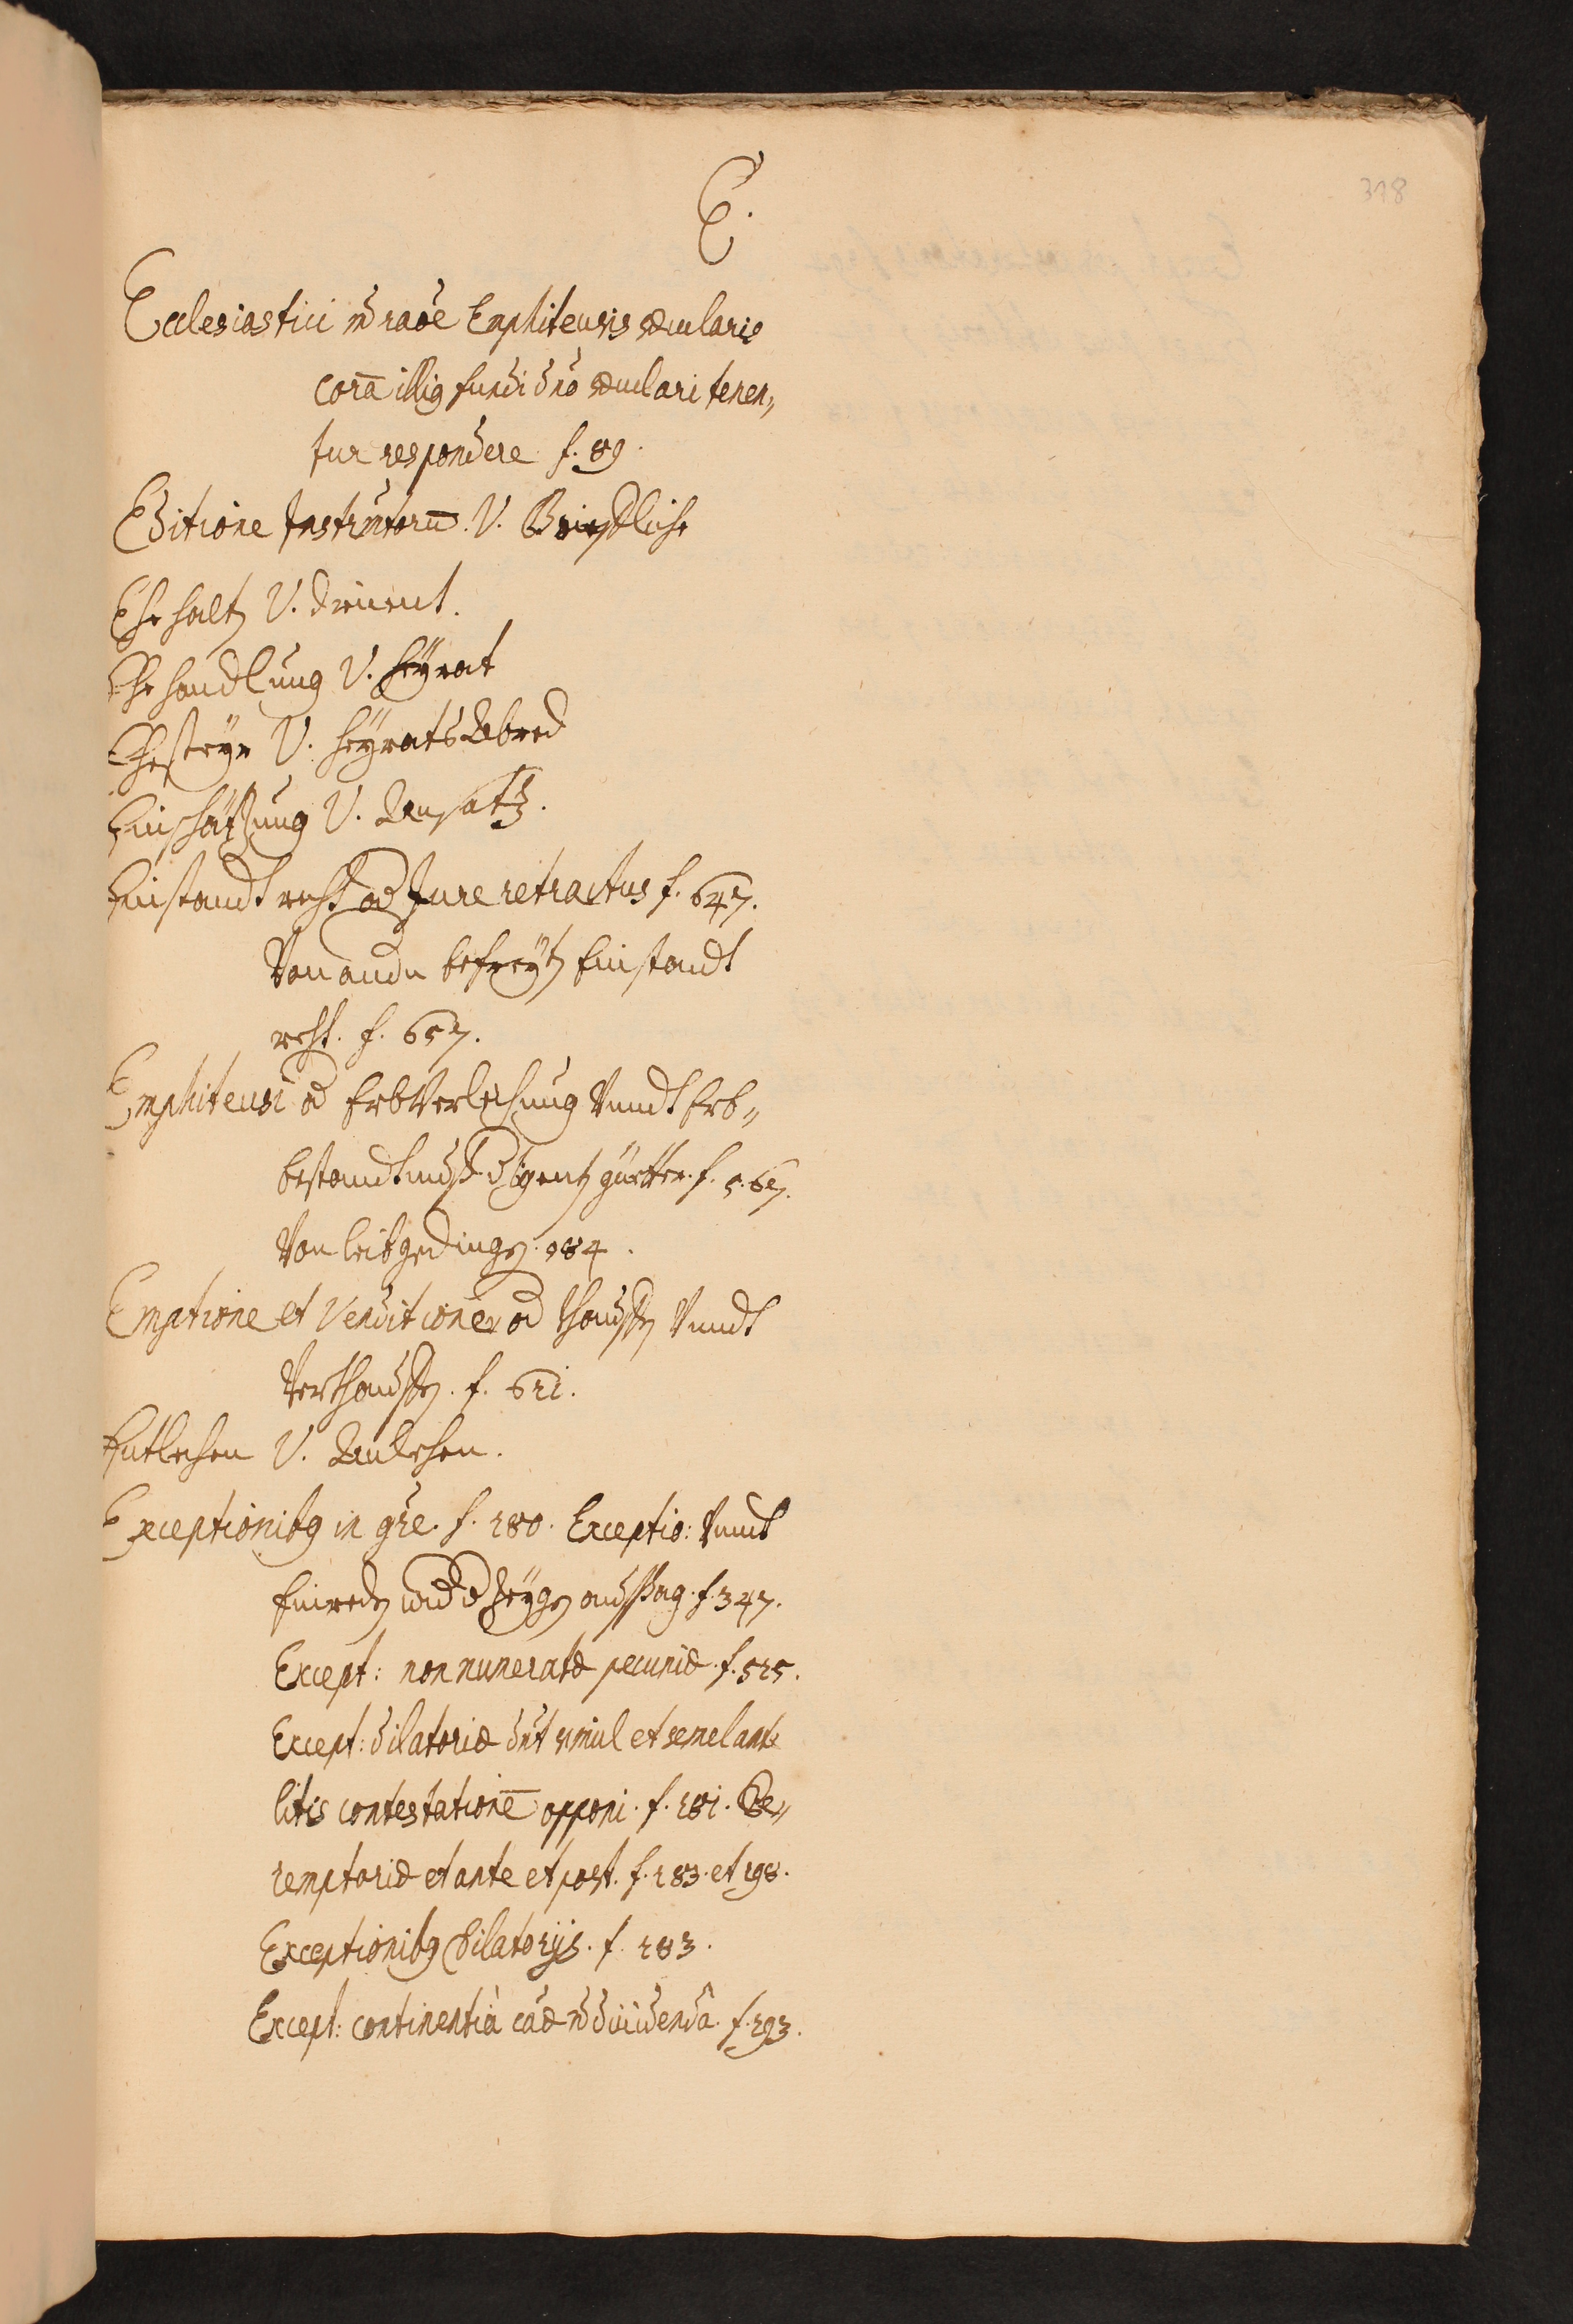 378
E.
Ecclesiastici in raõe Emphiteusis sæcularis
corã illig fundi dn̄o sæculari tenen„
tur respondere f. 89.
Editione Instrũtorũ. V. Brieffliche
Ehehalt V. dienent.
Ehehandlung V. Heÿrat
Ehesteyr V. HeyratsAbred
Einschätzung V. Ansatz.
Einstandtrecht od Jure retractus f. 647.
Von andn befreÿtn Einstandt
recht. f. 657.
Emphiteusi od Erbverleihung Vnndt Erb„
bestandtnuß d ligentn güetter. f. 567.
Von leibgedingn. 184.
Emptione et Venditione od Khauffn Vnndt
Verkhauffn. f. 621.
Entlehen V. Anlehen.
Exceptionibg in gre. f. 280. Exceptio: Vnnd
Einredn wid d Zeÿgn außsag. f. 347.
Except: non numeratæ pecuniæ. f. 525.
Except: dilatoriæ dn̄t simul et semel ante
litis contestationē opponi. f. 281. Pe„
remptoriæ et ante et post. f. 283. et 298.
Exceptionibg Dilatorijs. f. 283.
Except: continentià cãæ nõ diuidendâ. f. 293.